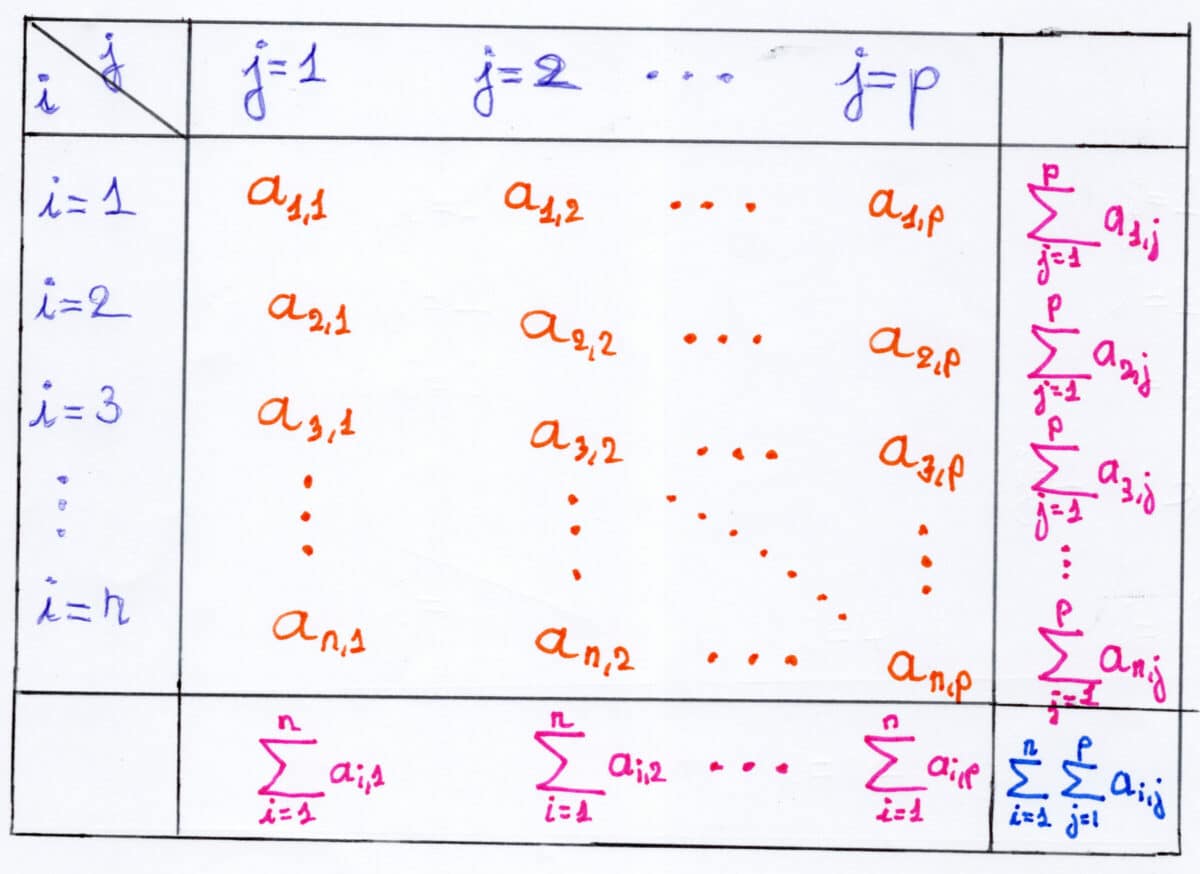 i j j=1 j=2 ... j=p
i=1 a_{1,1} a_{1,2} ... a_{1,p} \sum_{j=1}^{p} a_{1,j}
i=2 a_{2,1} a_{2,2} ... a_{2,p} \sum_{j=1}^{p} a_{2,j}
i=3 a_{3,1} a_{3,2} ... a_{3,p} \sum_{j=1}^{p} a_{3,j}
⋮ ⋮ ⋮ ⋱ ⋮ ⋮
i=n a_{n,1} a_{n,2} ... a_{n,p} \sum_{j=1}^{p} a_{n,j}
\sum_{i=1}^{n} a_{i,1} \sum_{i=1}^{n} a_{i,2} ... \sum_{i=1}^{n} a_{i,p} \sum_{i=1}^{n} \sum_{j=1}^{p} a_{i,j}